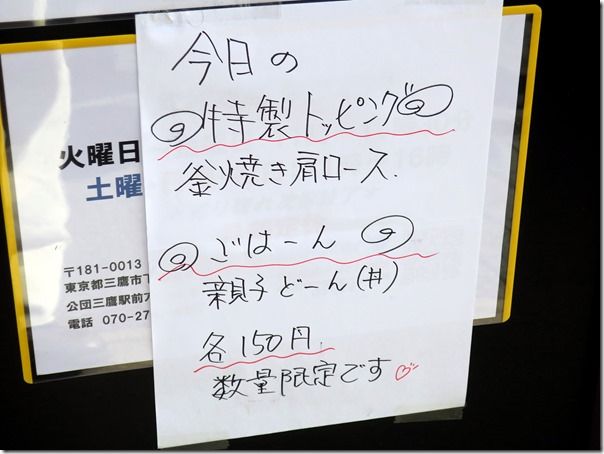 今日の
特製トッピング
釜焼き肩ロース.
ごはーん
親子どーん(丼)
各150円.
数量限定です
火曜日
土曜
〒181-0013
東京都三鷹市下
公団三鷹駅前
電話 070-27